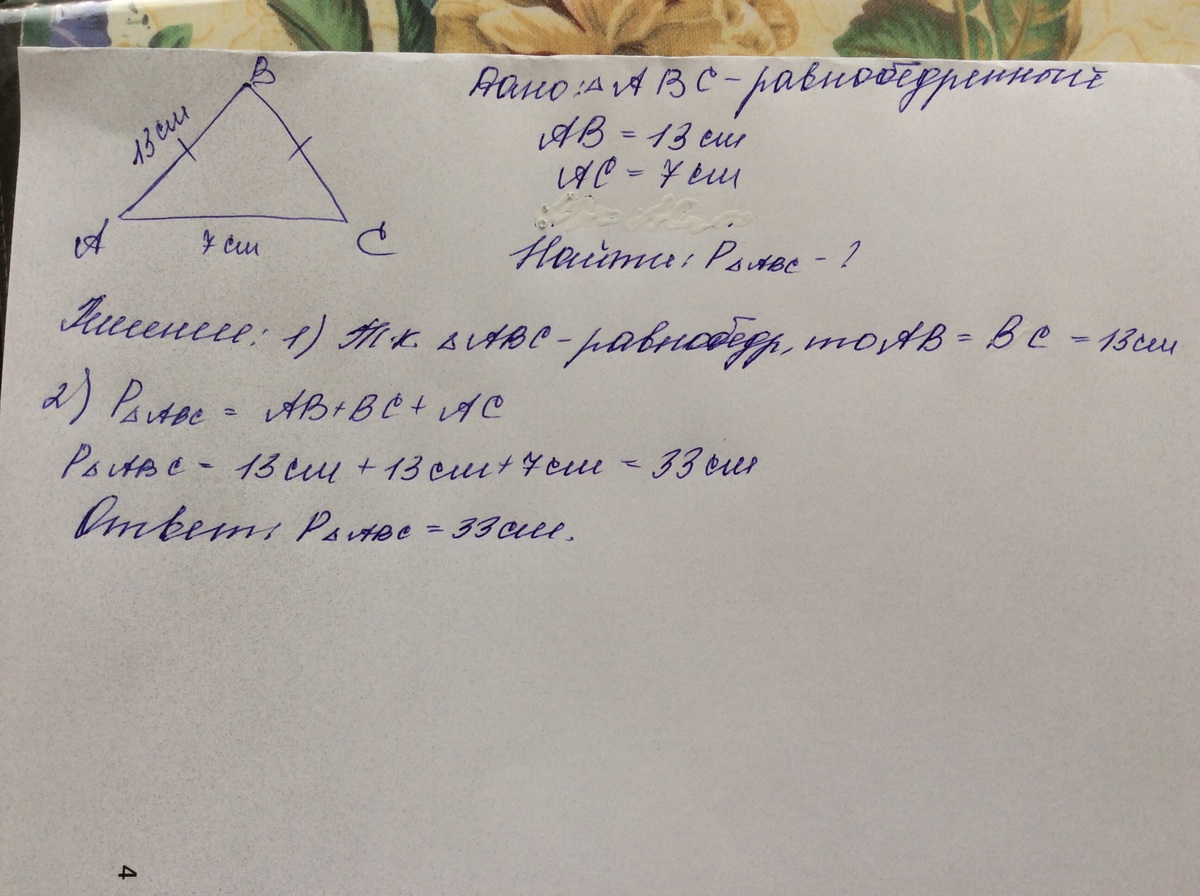 B
Дано: △ ABC - равнобедренный
13 см
AB = 13 см
AC = 7 см
A
7 см
C
Найти: P△ABC - ?
Решение: 1) Т.к. △ABC - равнобедр, то AB = BC = 13 см
2) P△ABC = AB + BC + AC
P△ABC = 13 см + 13 см + 7 см = 33 см
Ответ: P△ABC = 33 см.
4